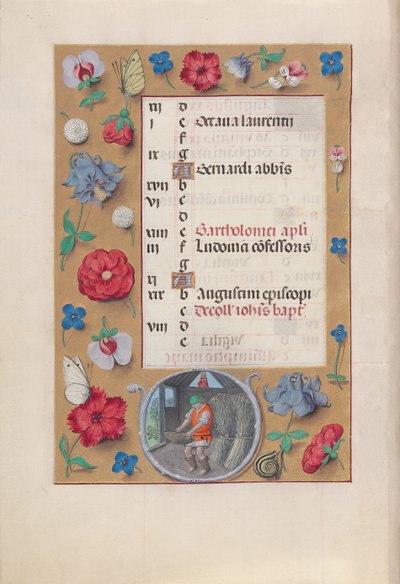 xii d
i e Octaua laurentii
f
ix g
A Bernardi abbis
xvii b
vi c
d
xiiii e Bartholomei apli
iii f Ludouici cõfessoris
g
xi A
xix b Augustini episcopi
c Decoll iohis bapt
viii d
e